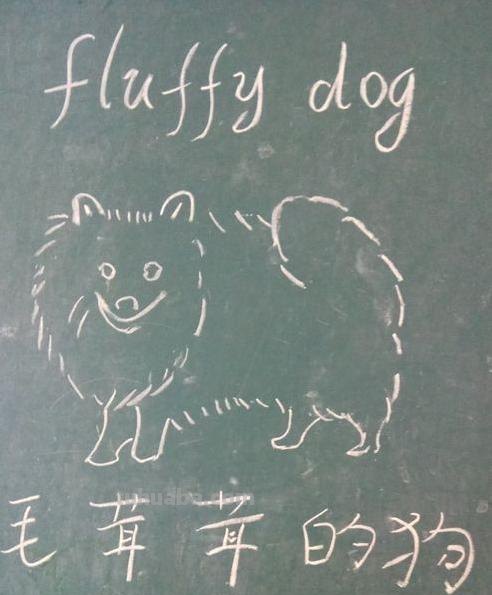 fluffy dog
yuhuaba.com
毛茸茸的狗